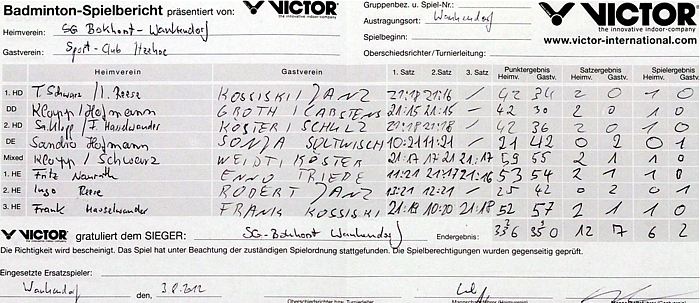 Badminton-Spielbericht präsentiert von: VICTOR the innovative indoor-company
Gruppenbez. u. Spiel-Nr.:
VICTOR the innovative indoor-company
www.victor-international.com
Heimverein: SG Bokhorst-Wankendorf
Austragungsort: Wankendorf
Gastverein: Sport-Club Itzehoe
Spielbeginn:
Oberschiedsrichter/Turnierleitung:
Heimverein Gastverein 1. Satz 2. Satz 3. Satz Punktergebnis Heimv. Gastv. Satzergebnis Heimv. Gastv. Spielergebnis Heimv. Gastv.
1. HD T. Schwarz / I. Reese KOSSISKI / JANZ 21:18 21:16 / 42 34 2 0 1 0
DD Klopp / Hofmann GROTH / CARSTENS 21:15 21:15 / 42 30 2 0 1 0
2. HD / F. KÖSTER / SCHULZ 21:18 21:18 / 42 36 2 0 1 0
DE Sandra Hofmann SONJA SOLTWISCH 10:21 11:21 / 21 42 0 2 0 1
Mixed Klopp / Schwarz WEIDTKÖSTER 21:17 17:21 21:17 59 55 2 1 1 0
1. HE Fritz ENNO THIEDE 21:17 11:21 21:16 53 54 2 1 1 0
2. HE Ingo Reese ROBERT JANZ 13:21 12:21 / 25 42 0 2 0 1
3. HE Frank FRANK KOSSISKI 21:19 10:20 21:18 52 57 2 1 1 0
VICTOR gratuliert dem SIEGER: SG-Bokhorst Wankendorf Endergebnis: 12 6 2
Die Richtigkeit wird bescheinigt. Das Spiel hat unter Beachtung der zuständigen Spielordnung stattgefunden. Die Spielberechtigungen wurden gegenseitig geprüft.
Eingesetzte Ersatzspieler:
Wankendorf den, 2012